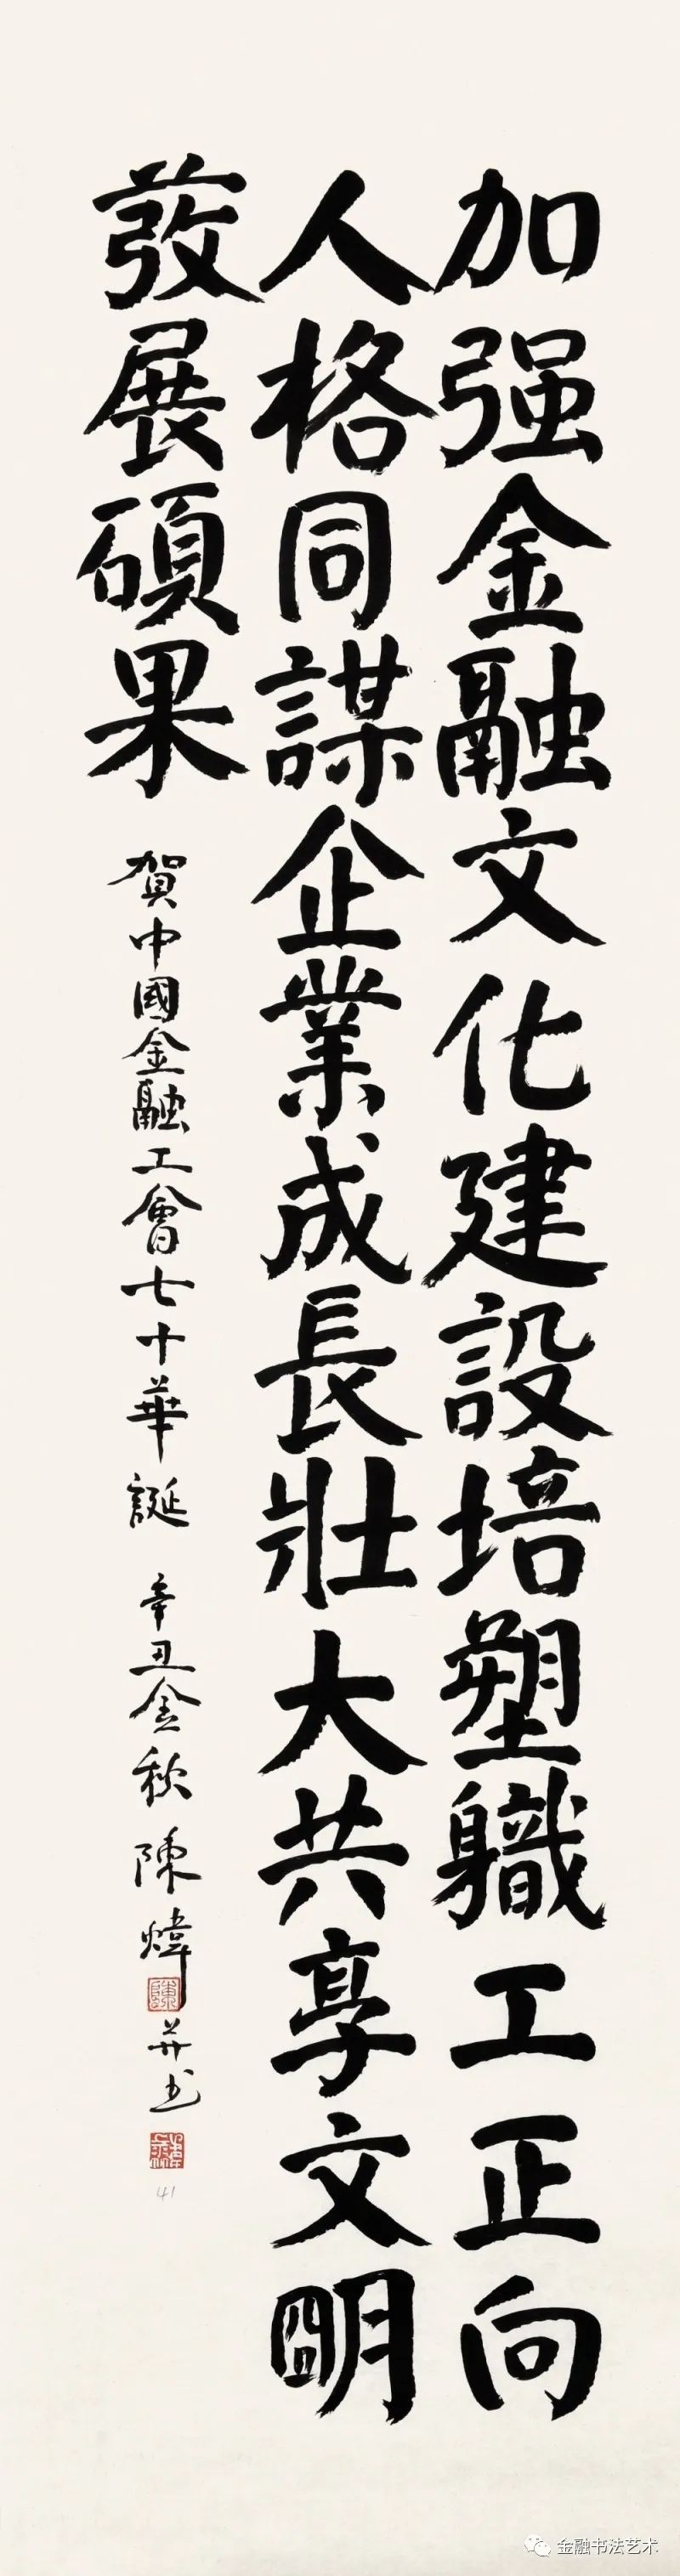 加强金融文化建設培塑職工正向
人格同謀企業成長壯大共享文明
發展碩果
賀中國金融工會七十華誕 辛丑金秋 陳煒 并书
41
金融书法艺术